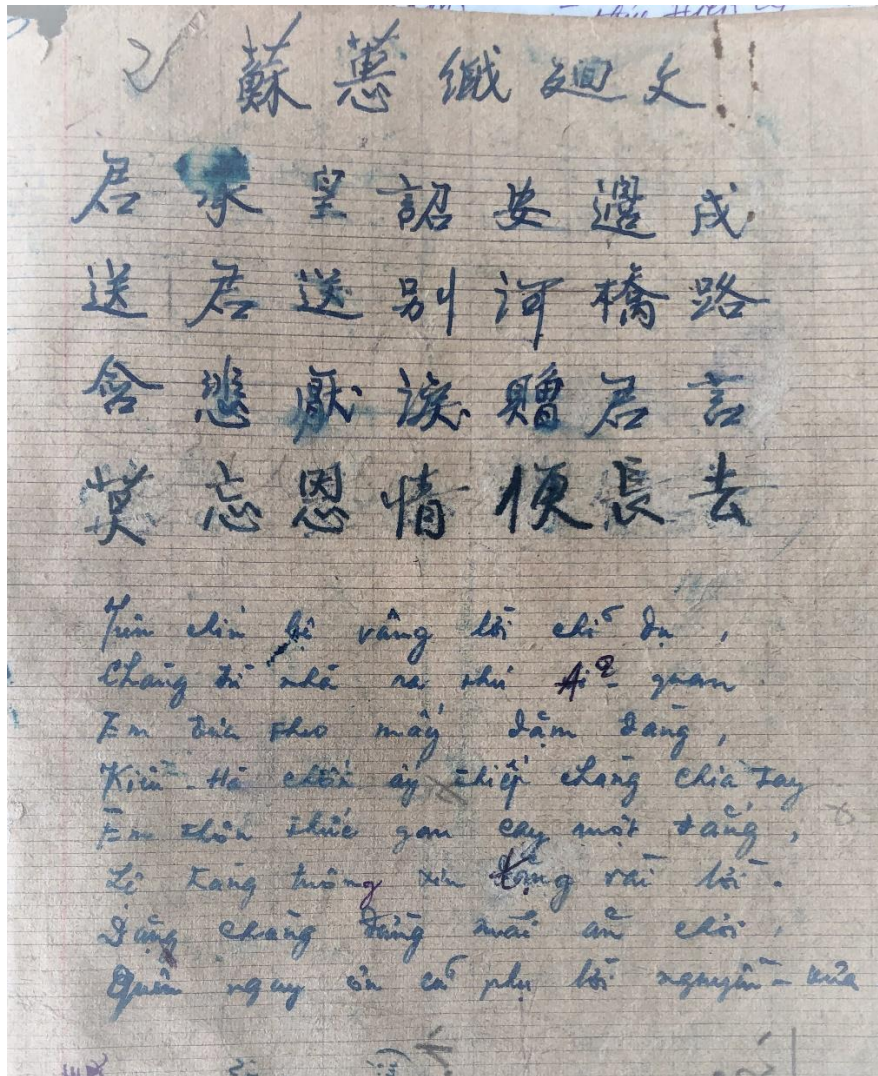 2 蘇蕙織廻文
君承皇詔安邊戍
送君送別河橋路
含悲獻淚贈君言
莫忘恩情便長去
Trên chín bệ vâng lời chỉ dụ,
Chàng từ nhà ra thú Ải quan.
Em đưa theo mấy dặm đàng,
Kiều-Hà chốn ấy thiếp chàng chia tay
Em thổn thức gan cay một đắng,
Lệ tuông xin tặng vài lời.
Dặng chàng đừng mải ăn chơi,
Quên ngay ơn cũ phụ lời nguyền-xưa